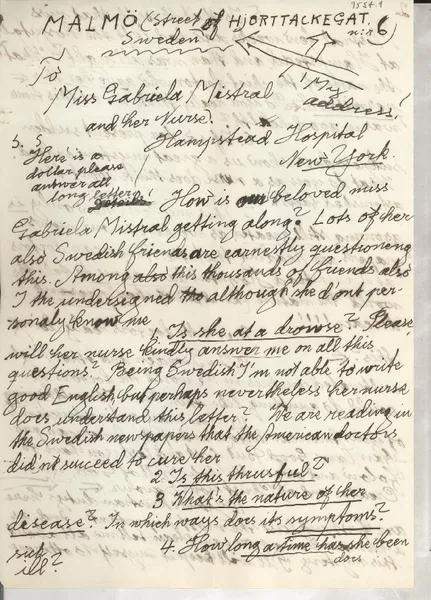 1554 1
MALMÖ (Street of HJORTTACKEGAT. n:r 6)
Sweden
To
Miss Gabriela Mistral
and her Nurse.
! My address!
Hampstead Hospital
New York.
Here is a
dollar please
answer all
long
details!
How is our beloved miss
Gabriela Mistral getting along? Lots of her
also Swedish friends are earnestly questioneng
this. Among also this thousands of friends also
I the undersigned tho although she d'ont per-
sonaly know me
1. Is she at a drowse? Please
will her nurse kindly answer me on all this
questions? Being Swedish I'm not able to write
good English, but perhaps nevertheless her nurse
does understand this letter? We are reading in
the Swedish newspapers that the American doctors
did'nt succeed to cure her
2 Is this thrusful?
3 What's the nature of her
disease? In which ways does its symptoms?
4. How long a time has she been
ill?